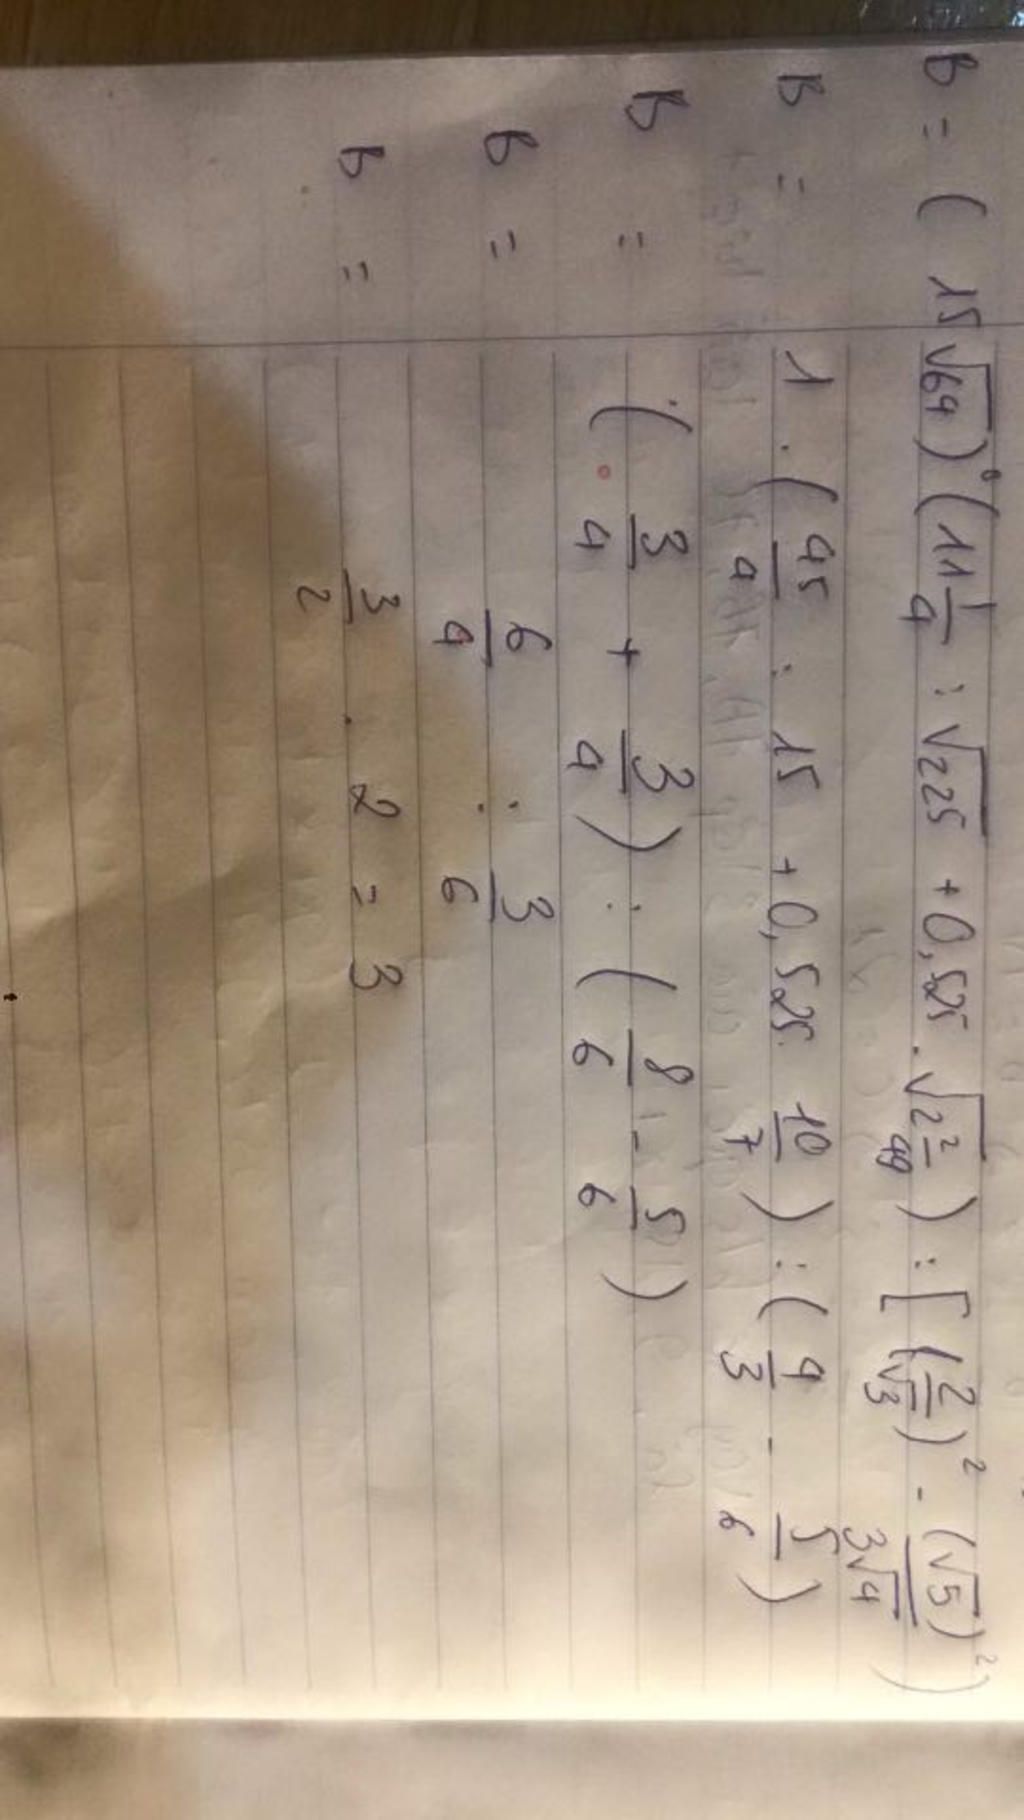 B = ( 15√64 )⁰ ( 11 1/4 : √225 + 0,525 . √(2 2/49) ) : [ (2/√3)² - (√5)²/3√4 )
B = 1 . ( 45/4 : 15 + 0,525 . 10/7 ) : ( 4/3 - 5/6 )
B = ( 3/4 + 3/4 ) : ( 8/6 - 5/6 )
B = 6/4 : 3/6
B = 3/2 . 2 = 3